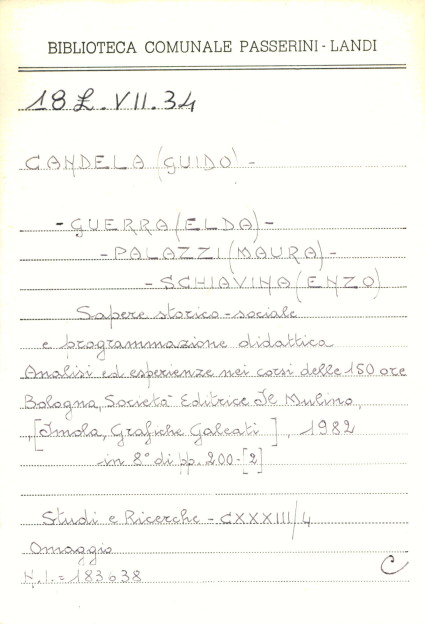 BIBLIOTECA COMUNALE PASSERINI - LANDI
18 L. VII. 34
CANDELA (GUIDO) -
- GUERRA (ELDA) -
- PALAZZI (MAURA) -
- SCHIAVINA (ENZO)
Sapere storico - sociale
e programmazione didattica
Analisi ed esperienze nei corsi delle 150 ore
Bologna, Società Editrice Il Mulino,
, [Imola, Grafiche Galeati], 1982
in 8° di pp. 200-[2]
Studi e Ricerche - CXXXIII/4
Omaggio
N. I. = 183638
C